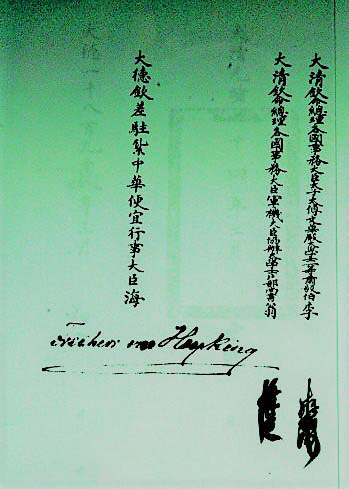 大清欽命總理各國事務大臣太子太傅文華殿大學士一等肅毅伯李
大清欽命總理各國事務大臣軍機大臣協辦大學士戶部尚書翁
大德欽差駐紮中華便宜行事大臣海
Freiherr von Heyking